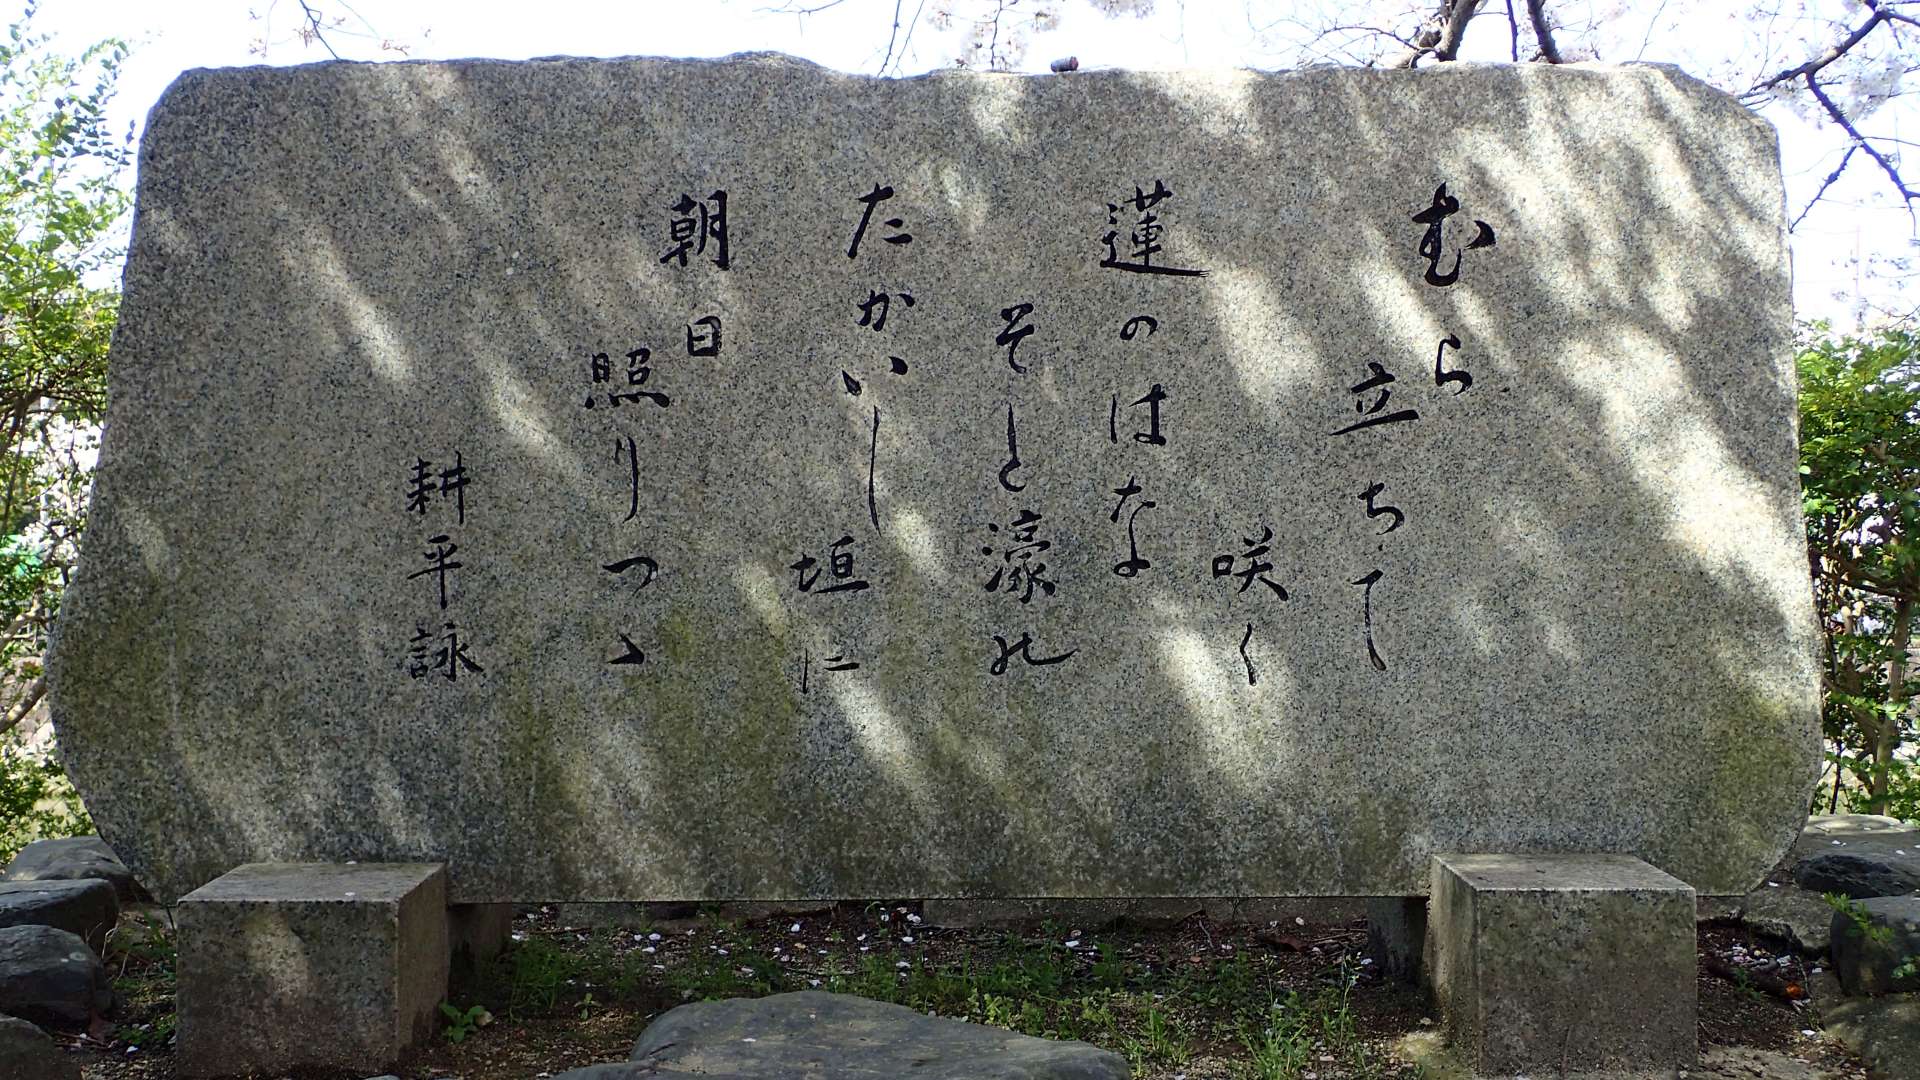 むら
立ちて
咲く
蓮のはな
そと濠の
たかいし
垣に
朝日
照りつゝ
耕平詠